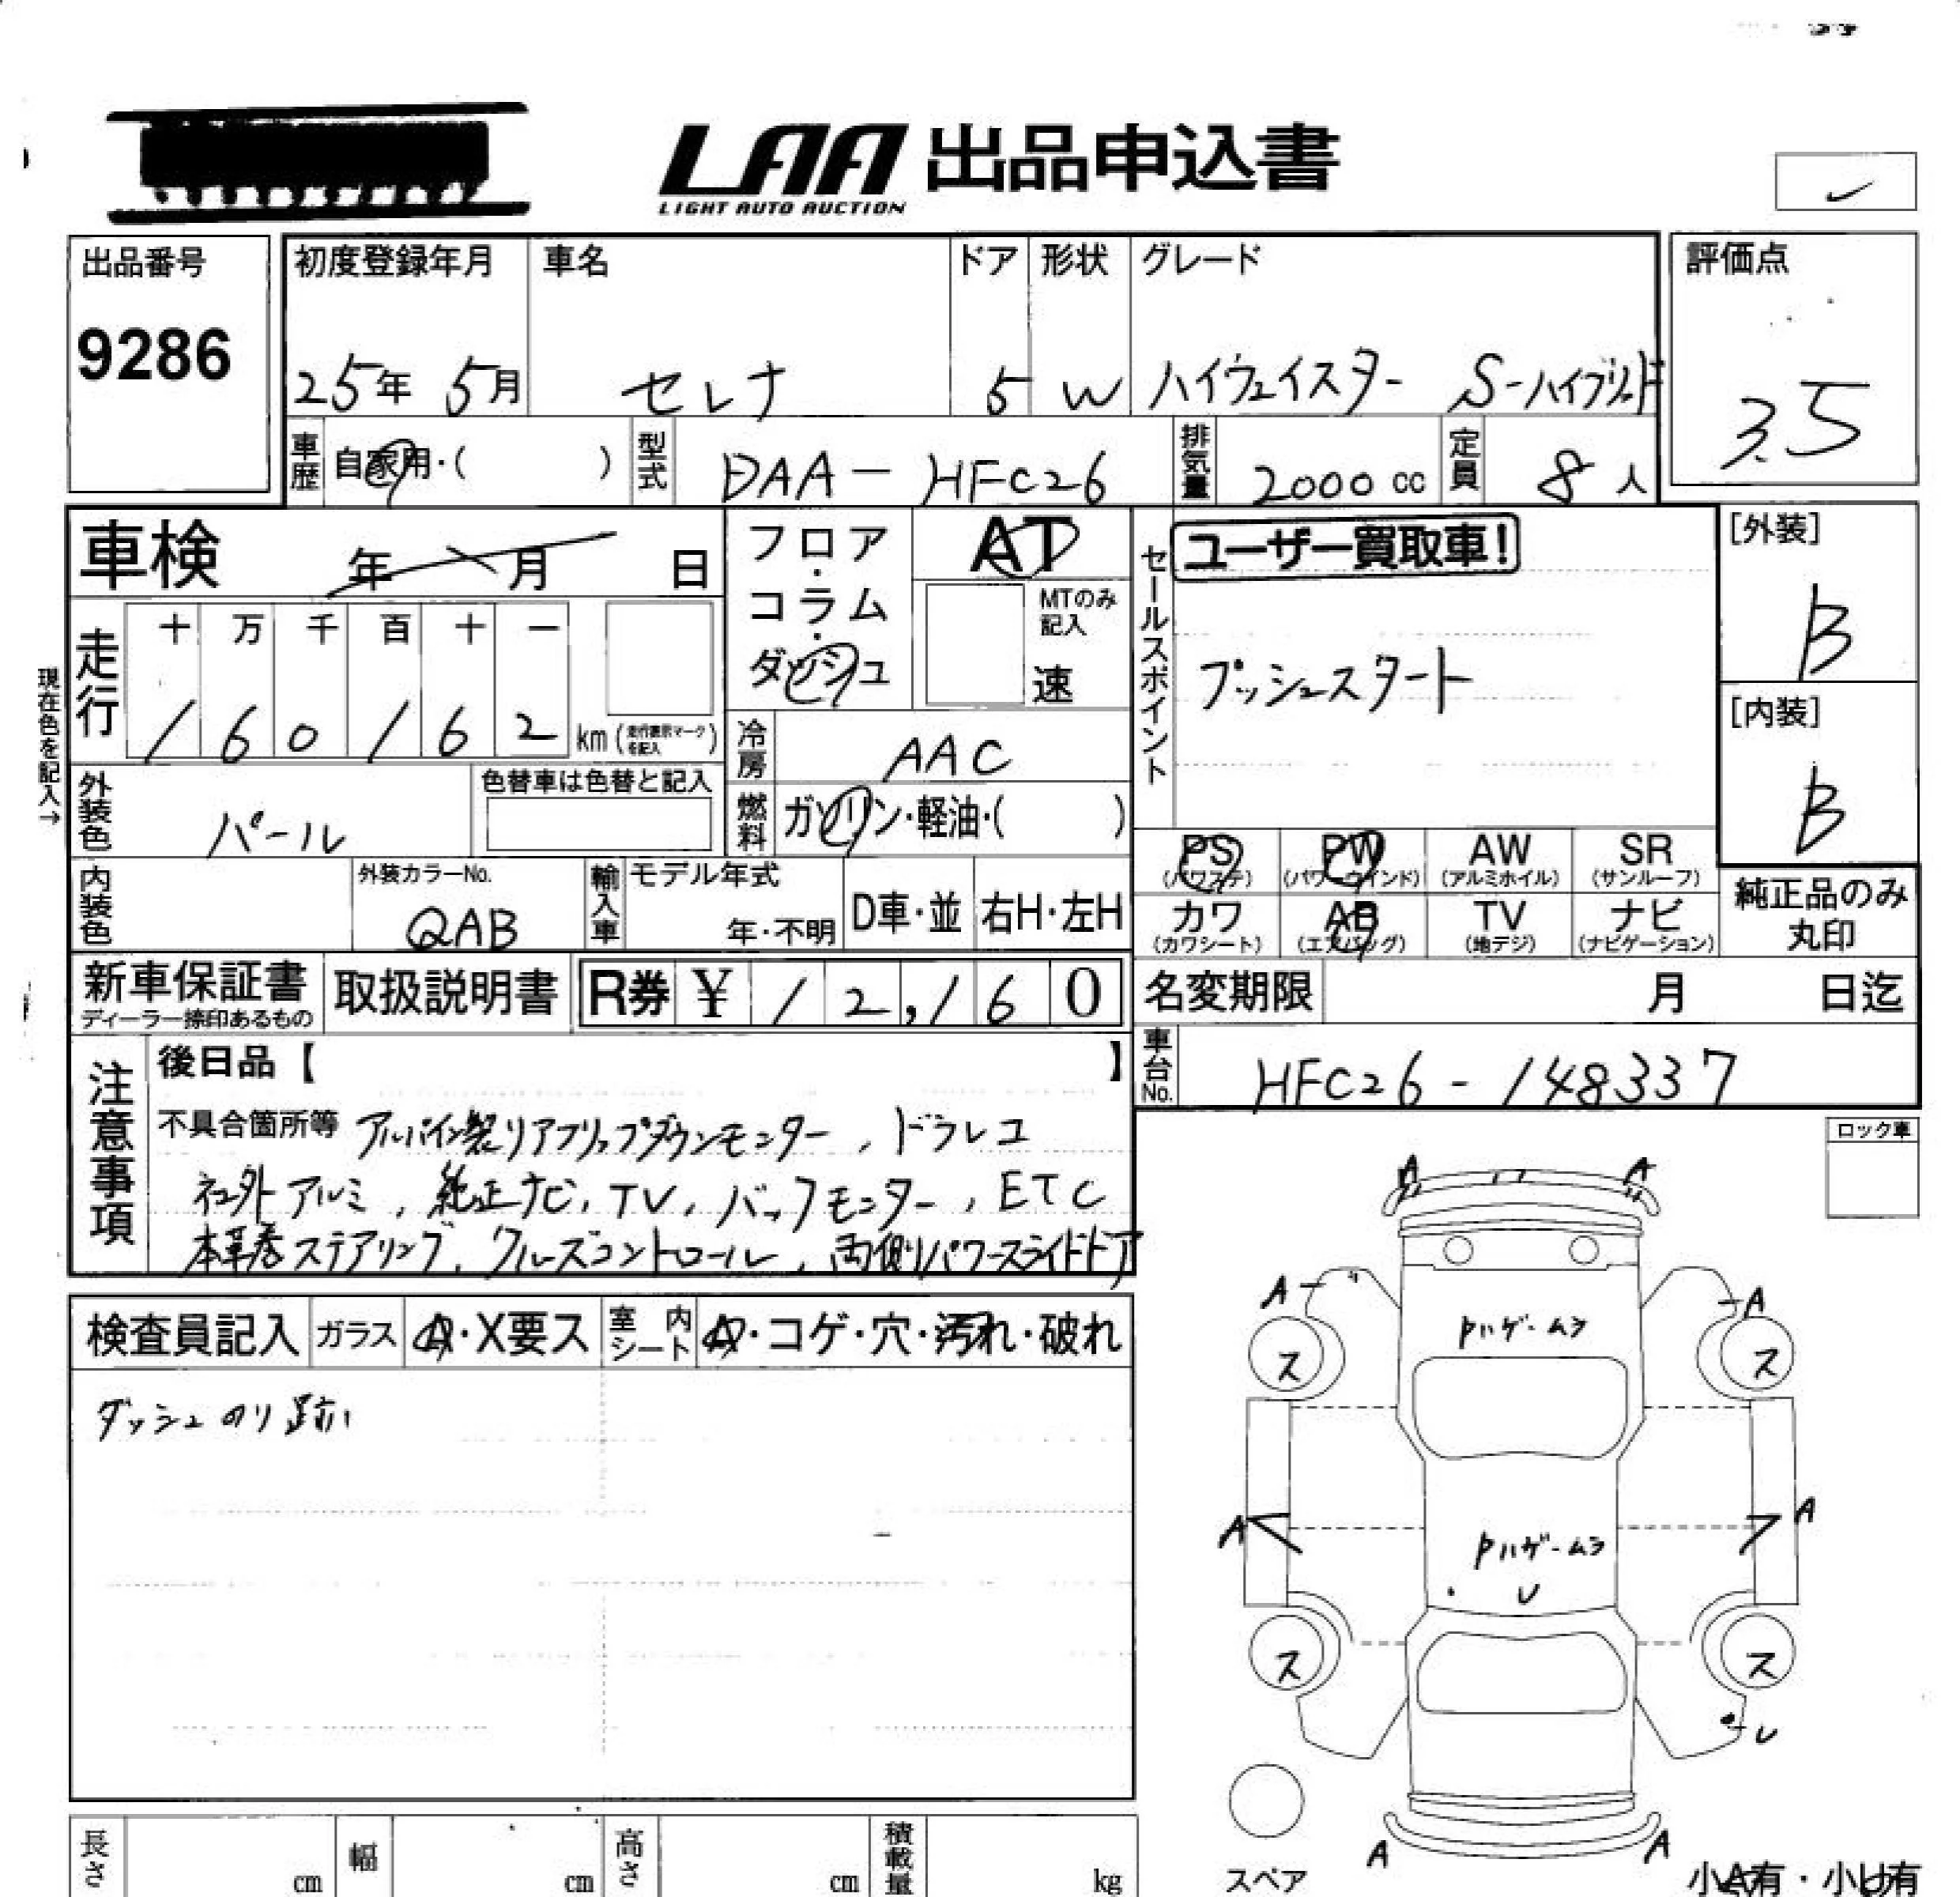 LAA 出品申込書
LIGHT AUTO AUCTION
出品番号
9286
初度登録年月 車名 ドア 形状 グレード 評価点
25年 5月 セレナ 5 W ハイウェイスター S-ハイブリッド 3.5
車歴 自家用・( ) 型式 DAA-HFC26 排気量 2000 cc 定員 8人
車検 年 月 日
フロア・コラム・ダッシュ
AT
MTのみ記入
速
セールスポイント
ユーザー買取車!
プッシュスタート
[外装]
B
[内装]
B
現在色を記入→
走行 十 万 千 百 十 一
1 6 0 1 6 2 km (走行表示マークを記入)
冷房 AAC
燃料 ガソリン・軽油・( )
外装色 パール 色替車は色替と記入
PS (パワステ) PW (パワーウインド) AW (アルミホイル) SR (サンルーフ)
カワ (カワシート) AB (エアバッグ) TV (地デジ) ナビ (ナビゲーション)
純正品のみ丸印
内装色 外装カラーNo. QAB 輸入車 モデル年式 年・不明 D車・並 右H・左H
新車保証書 ディーラー捺印あるもの 取扱説明書 R券 ¥ 12,160
名変期限 月 日迄
車台No. HFC26-148337
注意事項
後日品【 】
不具合箇所等 アルパイン製リアフリップダウンモニター, ドラレコ
社外アルミ, 純正ナビ, TV, バックモニター, ETC
本革巻ステアリング, クルーズコントロール, 両側パワースライドドア
検査員記入 ガラス A・X要ス 室内シート A・コゲ・穴・汚れ・破れ
ダッシュのり跡
ロック車
A A
A A
Pハゲームラ
ス ス
A A
Pハゲームラ
U
ス ス
U
A A
スペア
小A有・小U有
長さ cm 幅 cm 高さ cm 積載量 kg